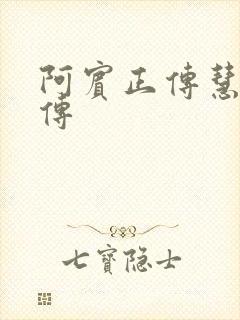 阿賓正傳慧
傳
七寶隐士